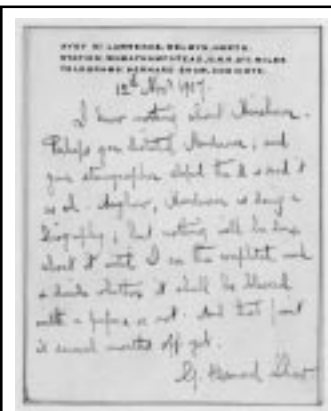 AYOT ST LAWRENCE, WELWYN, HERTS.
STATION: WHEATHAMPSTEAD, G.N.R. 2¼ MILES.
TELEGRAMS: BERNARD SHAW, CODICOTE.
12th Nov 1917.
I know nothing about
Perhaps you dictated Henderson, and
your stenographer the and it
as . Anyhow, Henderson is doing a
biography; but nothing will be done
about it until I see the completed work
& decide whether it shall be blessed
with a preface or not. And that point
is several months off yet.
G. Bernard Shaw